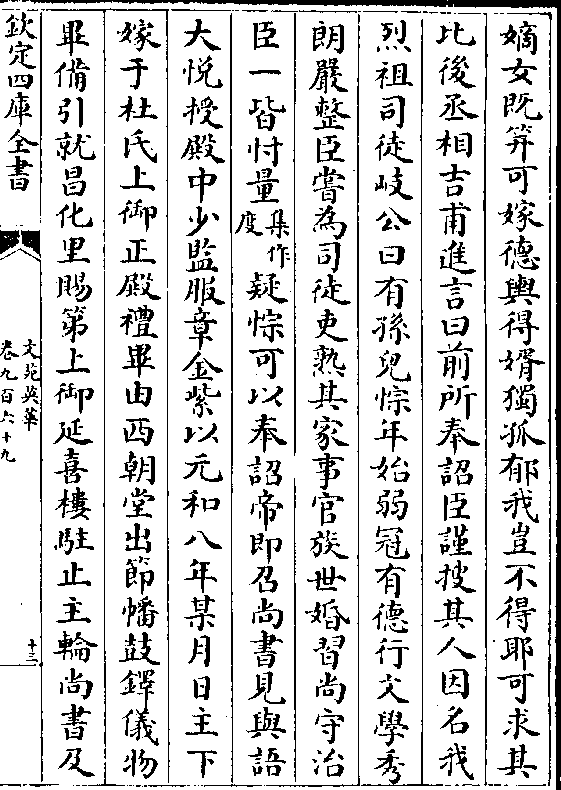 嫡女既笄可嫁德輿得婿獨孤郁我豈不得耶可求其
比後丞相吉甫進言曰前所奉詔臣謹搜其人因名我
烈祖司徒岐公曰有孫兒悰年始弱冠有德行文學秀
朗嚴整臣嘗為司徒吏熟其家事官族世婚習尚守治
臣一皆忖量集作度疑悰可以奉詔帝即召尚書見與語
大悅授殿中少監服章金紫以元和八年某月日主下
嫁于杜氏上御正殿禮畢由西朝堂出節幡鼓鐸儀物
畢備引就昌化里賜第上御延喜樓駐止主輪尚書及
欽定四庫全書
文苑英華
卷九百六十九
十三